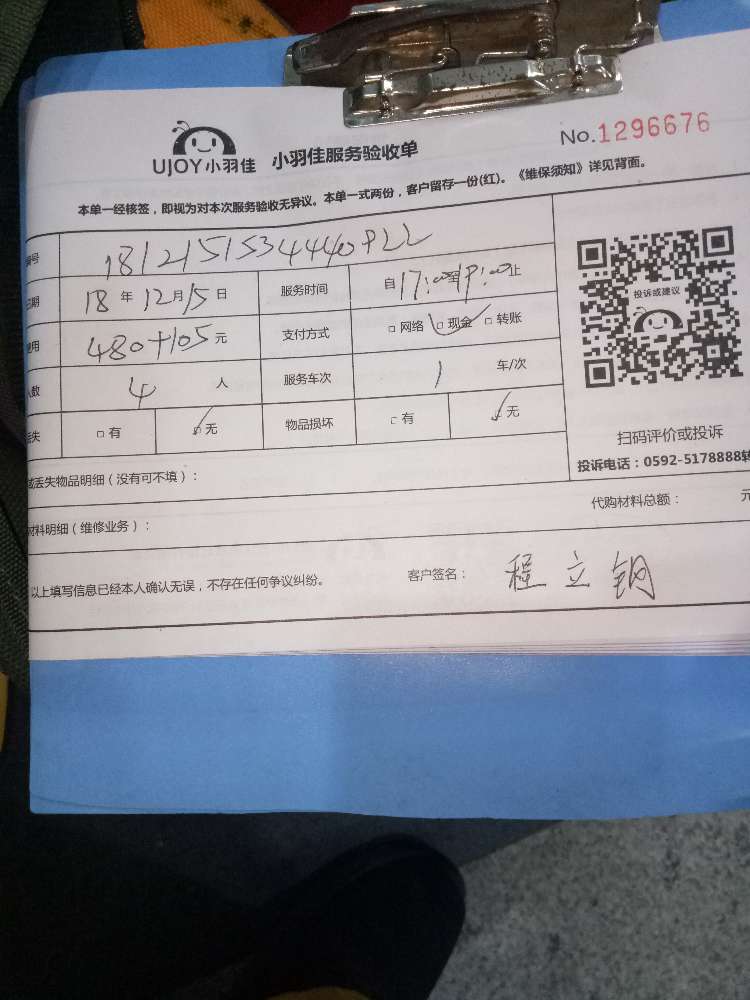 UJOY小羽佳 小羽佳服务验收单 No.1296676
本单一经核签，即视为对本次服务验收无异议。本单一式两份，客户留存一份(红)。《维保须知》详见背面。
编号 181215153444
期 18年12月15日 服务时间 自17:00至19:00止
用 480+105元 支付方式 □网络 □现金 □转账
人数 4人 服务车次 1车/次
丢失 □有 □无 物品损坏 □有 □无
投诉或建议
扫码评价或投诉
投诉电话：0592-5178888转
或丢失物品明细（没有可不填）：
材料明细（维修业务）： 代购材料总额： 元
以上填写信息已经本人确认无误，不存在任何争议纠纷。 客户签名：程立钢